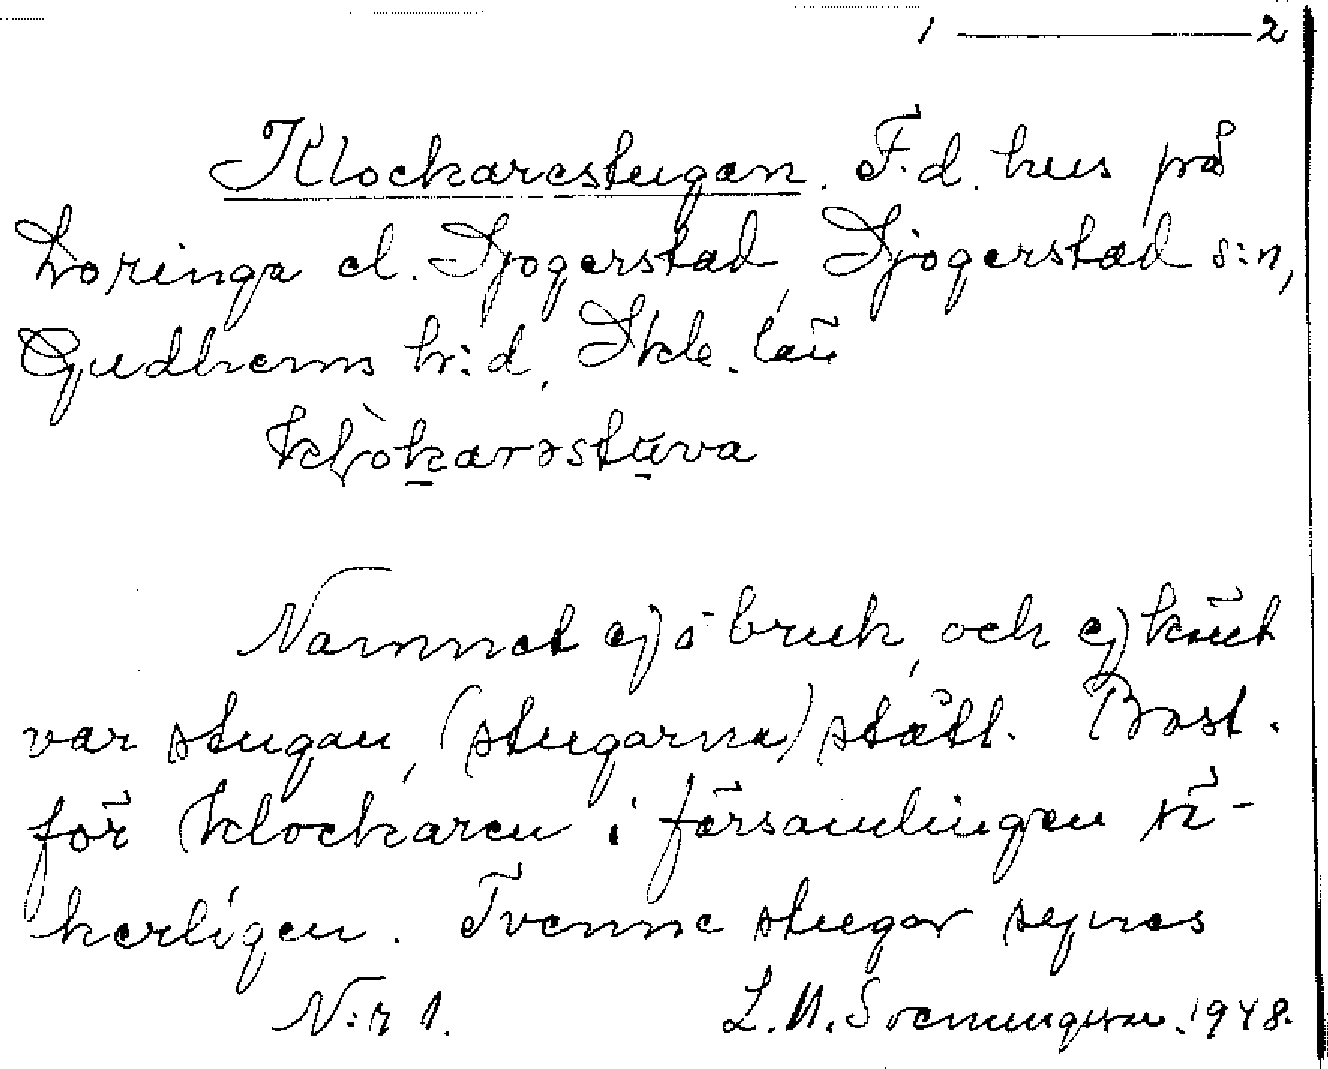 1 ———— 2
Klockarestugan. F.d. hus på
Loringa el. Sjogerstad, Sjogerstad s:n,
Gudhems h:d, Skb. län
klòkarəstuva
Namnet ej i bruk, och ej känt
var stugan, (stugorna) stått. Bost.
för klockaren i församlingen sä-
kerligen. Tvenne stugor synes
N:r 1. L.M. Svenungsson. 1948.